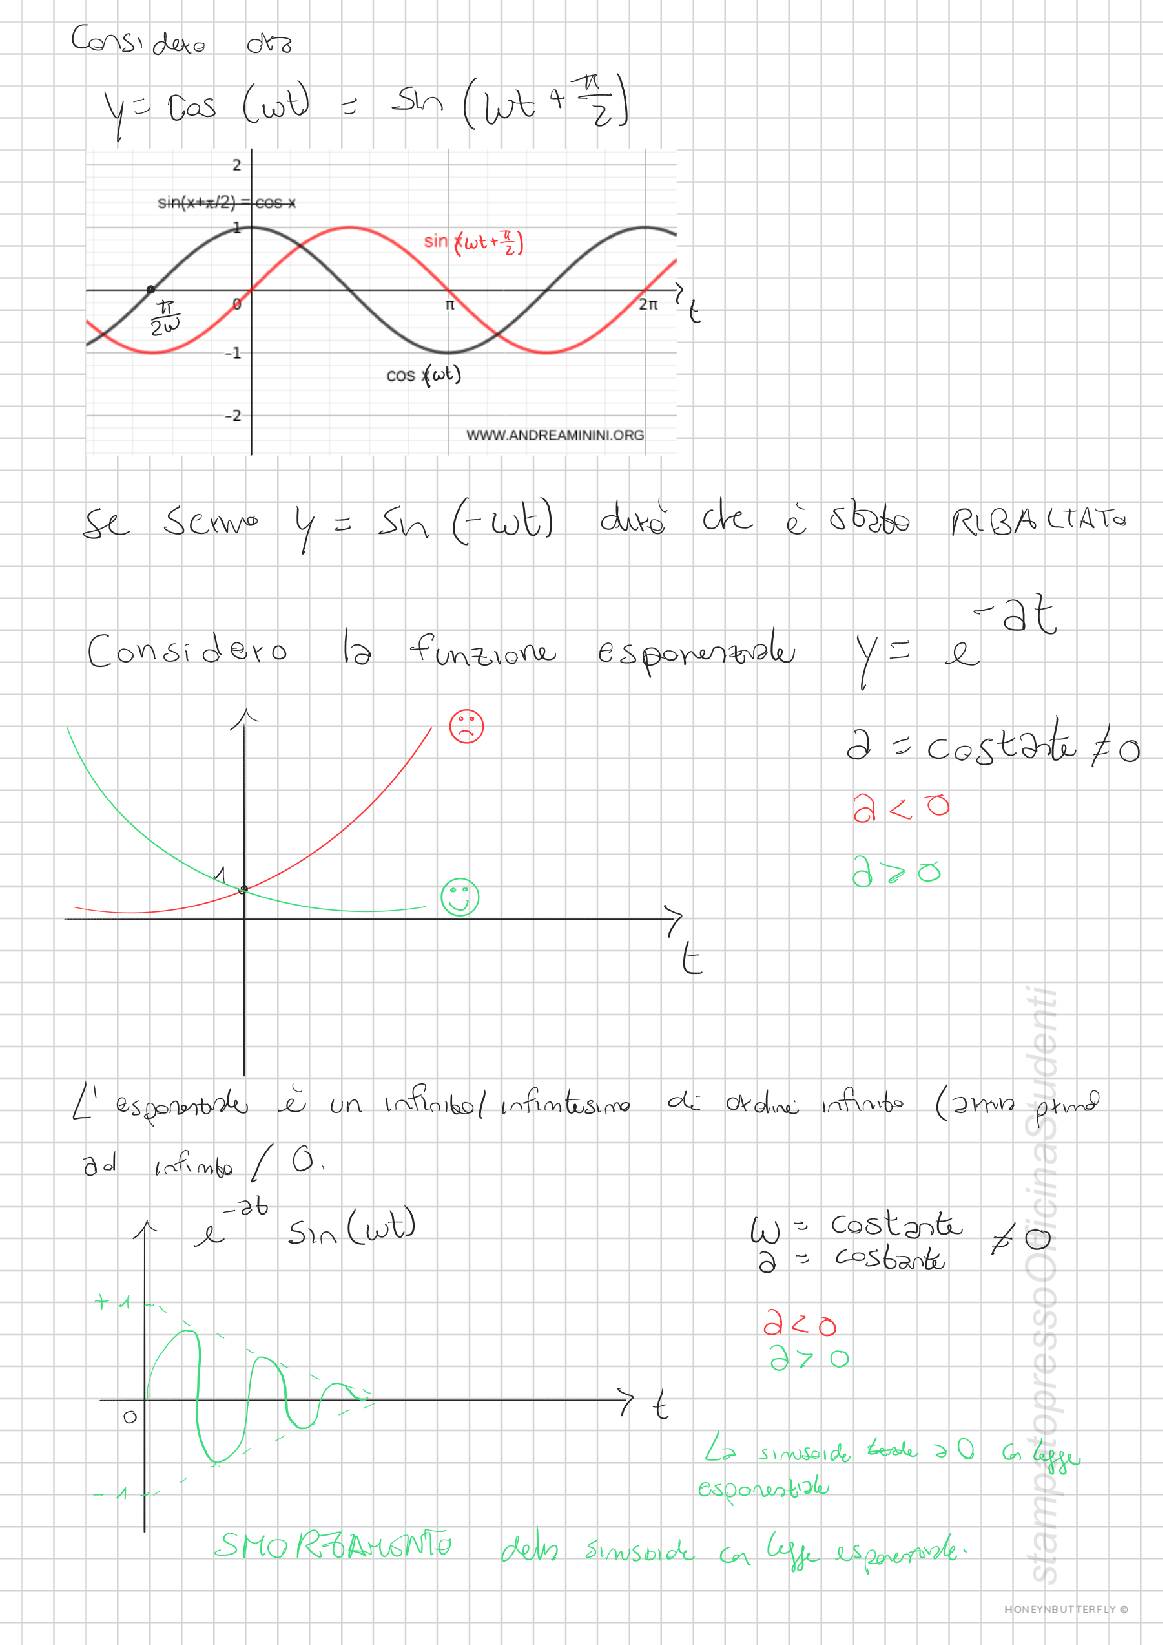 Considero ora
y = cos (ωt) = sin (ωt + π/2)
2
sin(x+π/2) = cos x
1
sin x (ωt + π/2)
0
π
2π
t
π/2ω
-1
cos x (ωt)
-2
WWW.ANDREAMININI.ORG
se scrivo y = sin (-ωt) dirò che è stato RIBALTATO
Considero la funzione esponenziale y = e^-at
a = costante ≠ 0
a < 0
a > 0
1
t
L'esponenziale è un infinito/infinitesimo di ordine infinito (arriva prima
ad infinito / 0.
e^-at sin(ωt)
ω = costante ≠ 0
a = costante
+1
a < 0
a > 0
0
t
La sinusoide tende a 0 con legge
esponenziale
-1
SMORZAMENTO della sinusoide con legge esponenziale.
stampatopressoOfficinaStudenti
HONEYNBUTTERFLY ©